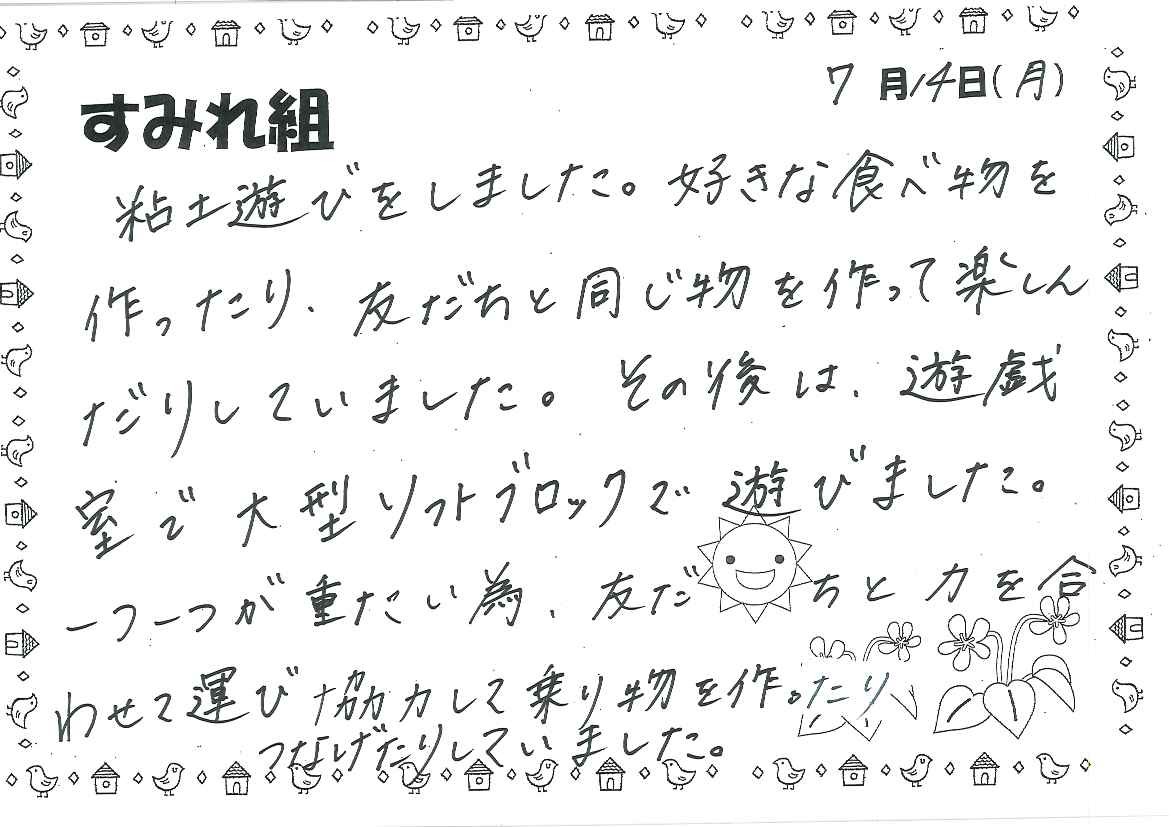 7月14日(月)
すみれ組
粘土遊びをしました。好きな食べ物を
作ったり、友だちと同じ物を作って楽しん
だりしていました。その後は、遊戯
室で大型ソフトブロックで遊びました。
一つ一つが重たい為、友だちと力を合
わせて運び協力して乗り物を作ったり
つなげたりしていました。